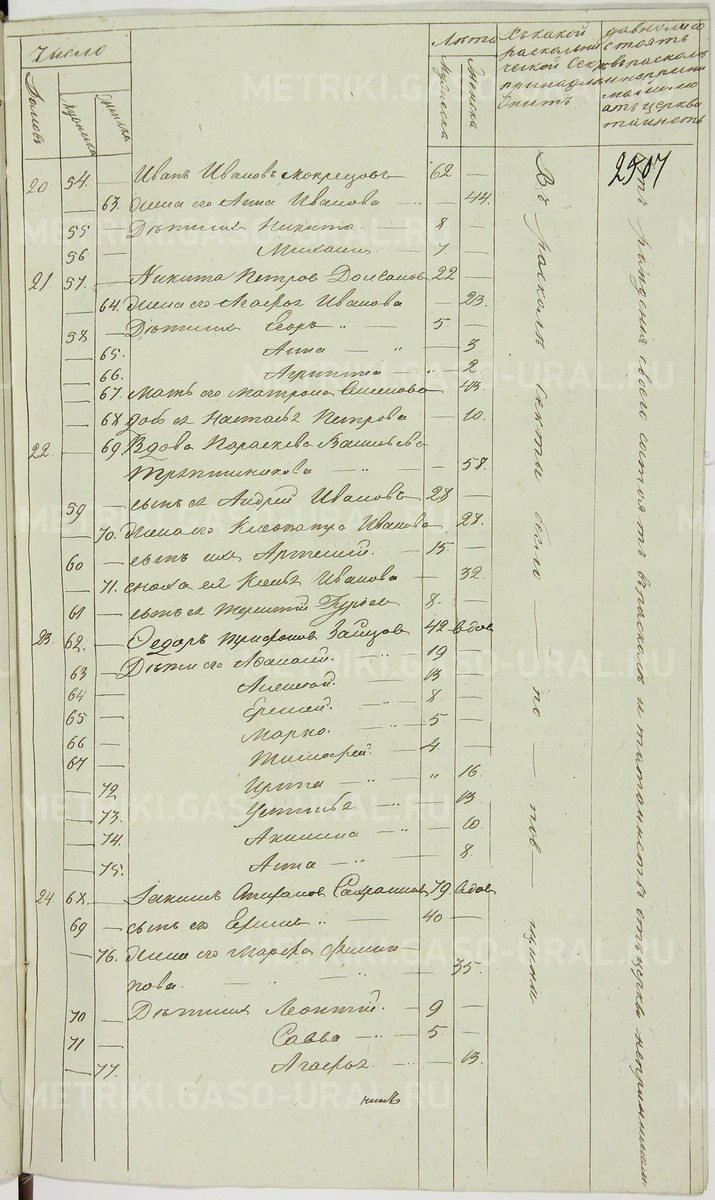 Число
Домовъ
Мужеска
Женска
Лѣта
Мужеска
Женска
Къ какой
раскольни
ческой Сектѣ
принадле
житъ
давно ли со
стоятъ
въ расколѣ
и не прини
маютъ ли
отъ церкви
таинствъ
2507
20 54. — Иванъ Ивановъ Мокрецовъ 62 —
— 63. жена его Анна Иванова — 44.
55 — Дѣти ихъ Никита. — 8 —
56 — Михаилъ — 7 —
21 57. — Никита Петровъ 22 —
— 64. жена его Агафья Иванова — 23.
58 — Дѣти ихъ Егоръ „ — 5 —
— 65. Анна — „ — 3.
— 66. — „ 2
— 67 мать его Матрона Семенова 43.
— 68 дочь ея Настасья Петрова — 10.
22. — 69 Вдова Параскева Васильева
— „ — 58.
59 — сынъ ея Андрей Ивановъ 28 —
— 70. жена его Клеопатра Иванова 28.
60 — сынъ ихъ Артемий. — 15 —
— 71. сноха ея Иванова — 32.
61 — сынъ ея 8. —
23. 62. — Федоръ Трифоновъ Зайцовъ 42 вдов
63 — Дѣти его Афанасий. 19 —
64 — Алексей. 13 —
65 — Еремей. — 8 —
66 — Марко. — 5 —
67 — Тимофей. — 4 —
— 72 Ирина — „ — „ 16.
— 73. Устинья — „ — 13.
— 74. Акилина — „ — 10.
— 75. Анна — „ — 8.
24 68. — 79. вдов
69 — сынъ его „ — 40 —
— 76. жена его Марфа Филип
пова. — 35.
70 — Дѣти ихъ Леонтий. — 9 —
71 — Савва — „ — 5. —
— 77. Агафья — 13.
Въ расколѣ секты
отъ рожденія своего состоятъ въ расколѣ и таинствъ отъ церкви непринимали
METRIKI.GASO-URAL.RU